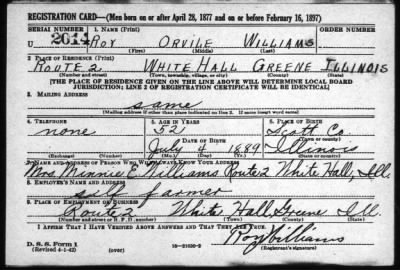 REGISTRATION CARD—(Men born on or after April 28, 1877 and on or before February 16, 1897)
SERIAL NUMBER 1. NAME (Print) ORDER NUMBER
U 2014 ROY ORVILE WILLIAMS
(First) (Middle) (Last)
2. PLACE OF RESIDENCE (Print)
ROUTE 2 WHITE HALL GREENE ILLINOIS
(Number and street) (Town, township, village, or city) (County) (State)
[THE PLACE OF RESIDENCE GIVEN ON THE LINE ABOVE WILL DETERMINE LOCAL BOARD
JURISDICTION; LINE 2 OF REGISTRATION CERTIFICATE WILL BE IDENTICAL]
3. MAILING ADDRESS
same
[Mailing address if other than place indicated on line 2. If same insert word same]
4. TELEPHONE 5. AGE IN YEARS 6. PLACE OF BIRTH
none 52 Scott Co.
DATE OF BIRTH (Town or county)
July 4 1889 Illinois
(Exchange) (Number) (Mo.) (Day) (Yr.) (State or country)
7. NAME AND ADDRESS OF PERSON WHO WILL ALWAYS KNOW YOUR ADDRESS
Mrs. Minnie E. Williams Route 2 White Hall, Ill.
8. EMPLOYER'S NAME AND ADDRESS
self farmer
9. PLACE OF EMPLOYMENT OR BUSINESS
Route 2 White Hall, Greene Ill.
(Number and street or R. F. D. number) (Town) (County) (State)
I AFFIRM THAT I HAVE VERIFIED ABOVE ANSWERS AND THAT THEY ARE TRUE.
Roy Williams
D. S. S. Form 1
(Revised 4-1-42) (over) 16—21630-2 (Registrant's signature)